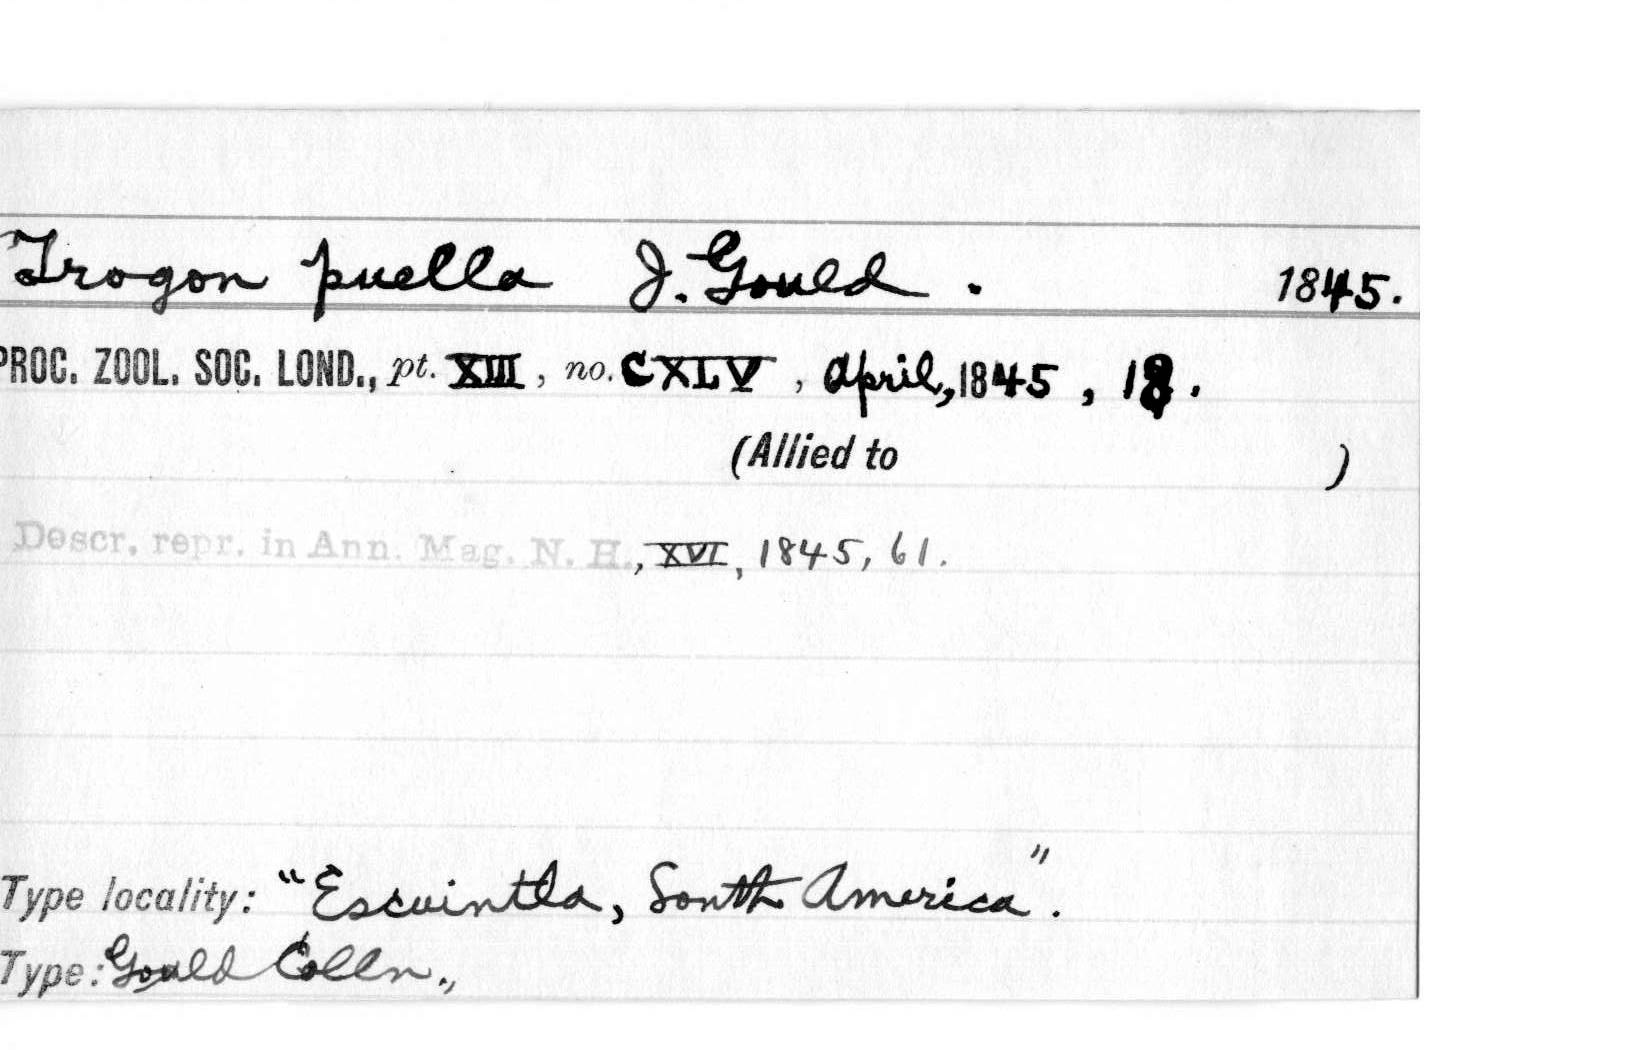 Trogon puella J. Gould. 1845.
PROC. ZOOL. SOC. LOND., pt. XIII, no. CXLV, April, 1845, 18.
(Allied to )
Descr. repr. in Ann. Mag. N. H., XVI, 1845, 61.
Type locality: "Escuintla, South America".
Type: Gould Colln.,